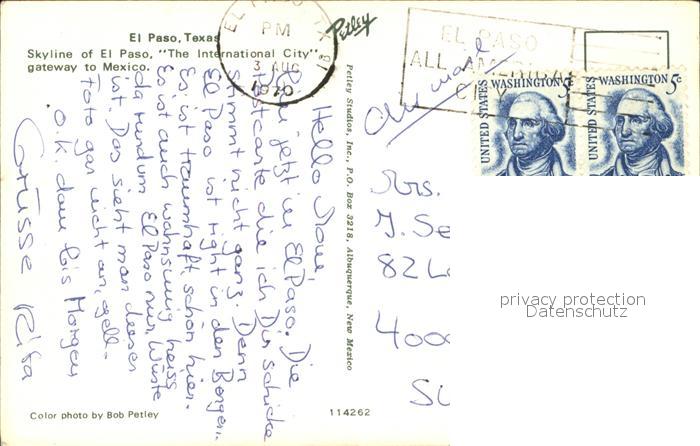 El Paso, Texas
Skyline of El Paso, "The International City",
gateway to Mexico.
EL PASO
PM
3 AUG
1970
Petley
EL PASO
ALL AMERICA
CITY
UNITED STATES
WASHINGTON 5¢
UNITED STATES
WASHINGTON 5¢
Air mail
Petley Studios, Inc., P.O. Box 3218, Albuquerque, New Mexico
Hello
Bin jetzt in El Paso. Die
Postcarte die ich Dir schicke
stimmt nicht ganz. Denn
El Paso ist right in den Bergen.
Es ist traumhaft schön hier.
Es ist auch wahnsinnig heiss
da rundum El Paso nur Wüste
ist. Das sieht man diesem
Foto gar nicht an, gell.
O.K. dann bis Morgen
Grüsse Rita
Mrs.
J. Se
82
400
privacy protection
Datenschutz
Color photo by Bob Petley
114262